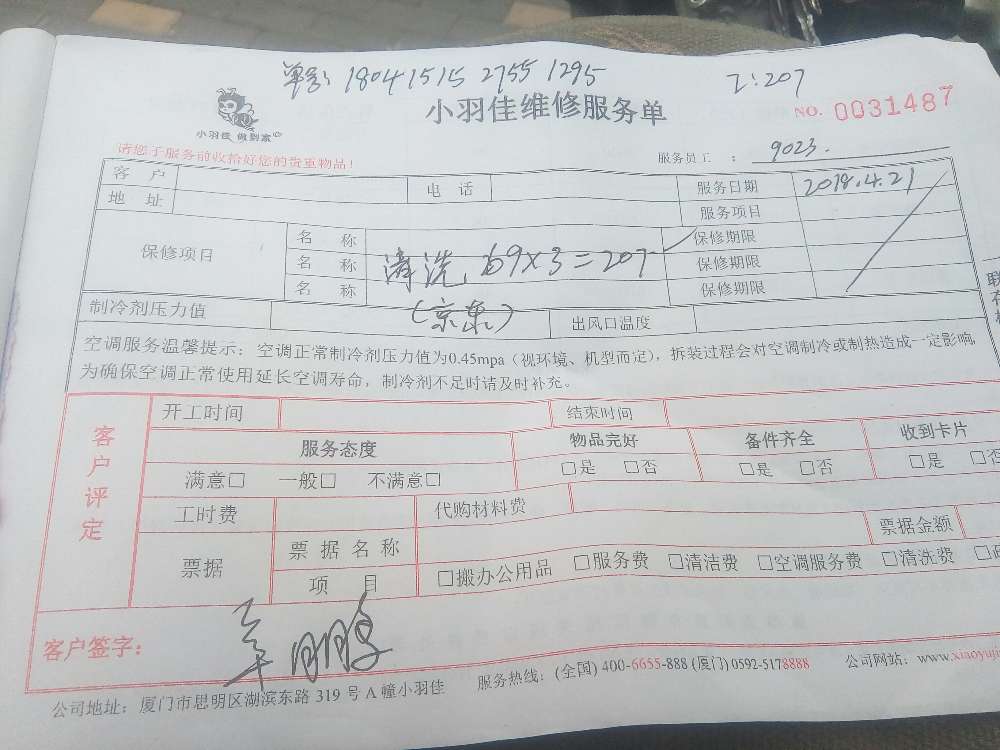 单号: 18041515 2755 1295
工: 207
小羽佳 做到家
小羽佳维修服务单
NO. 0031487
请您于服务前收拾好您的贵重物品!
服务员工 : 9023.
客 户 电 话 服务日期 2018.4.21
地 址 服务项目
保修项目 名 称 保修期限
名 称 清洗, 69×3=207 保修期限
名 称 保修期限
制冷剂压力值 (京东) 出风口温度
空调服务温馨提示: 空调正常制冷剂压力值为0.45mpa (视环境、机型而定), 拆装过程会对空调制冷或制热造成一定影响,
为确保空调正常使用延长空调寿命, 制冷剂不足时请及时补充。
客户评定
开工时间 结束时间
服务态度 物品完好 备件齐全 收到卡片
满意□ 一般□ 不满意□ □是 □否 □是 □否 □是 □否
工时费 代购材料费
票据 票据名称 票据金额
项 目 □搬办公用品 □服务费 □清洁费 □空调服务费 □清洗费
客户签字:
公司地址: 厦门市思明区湖滨东路 319 号 A 幢小羽佳 服务热线: (全国) 400-6655-888 (厦门) 0592-5178888 公司网站: www.xiaoyuji